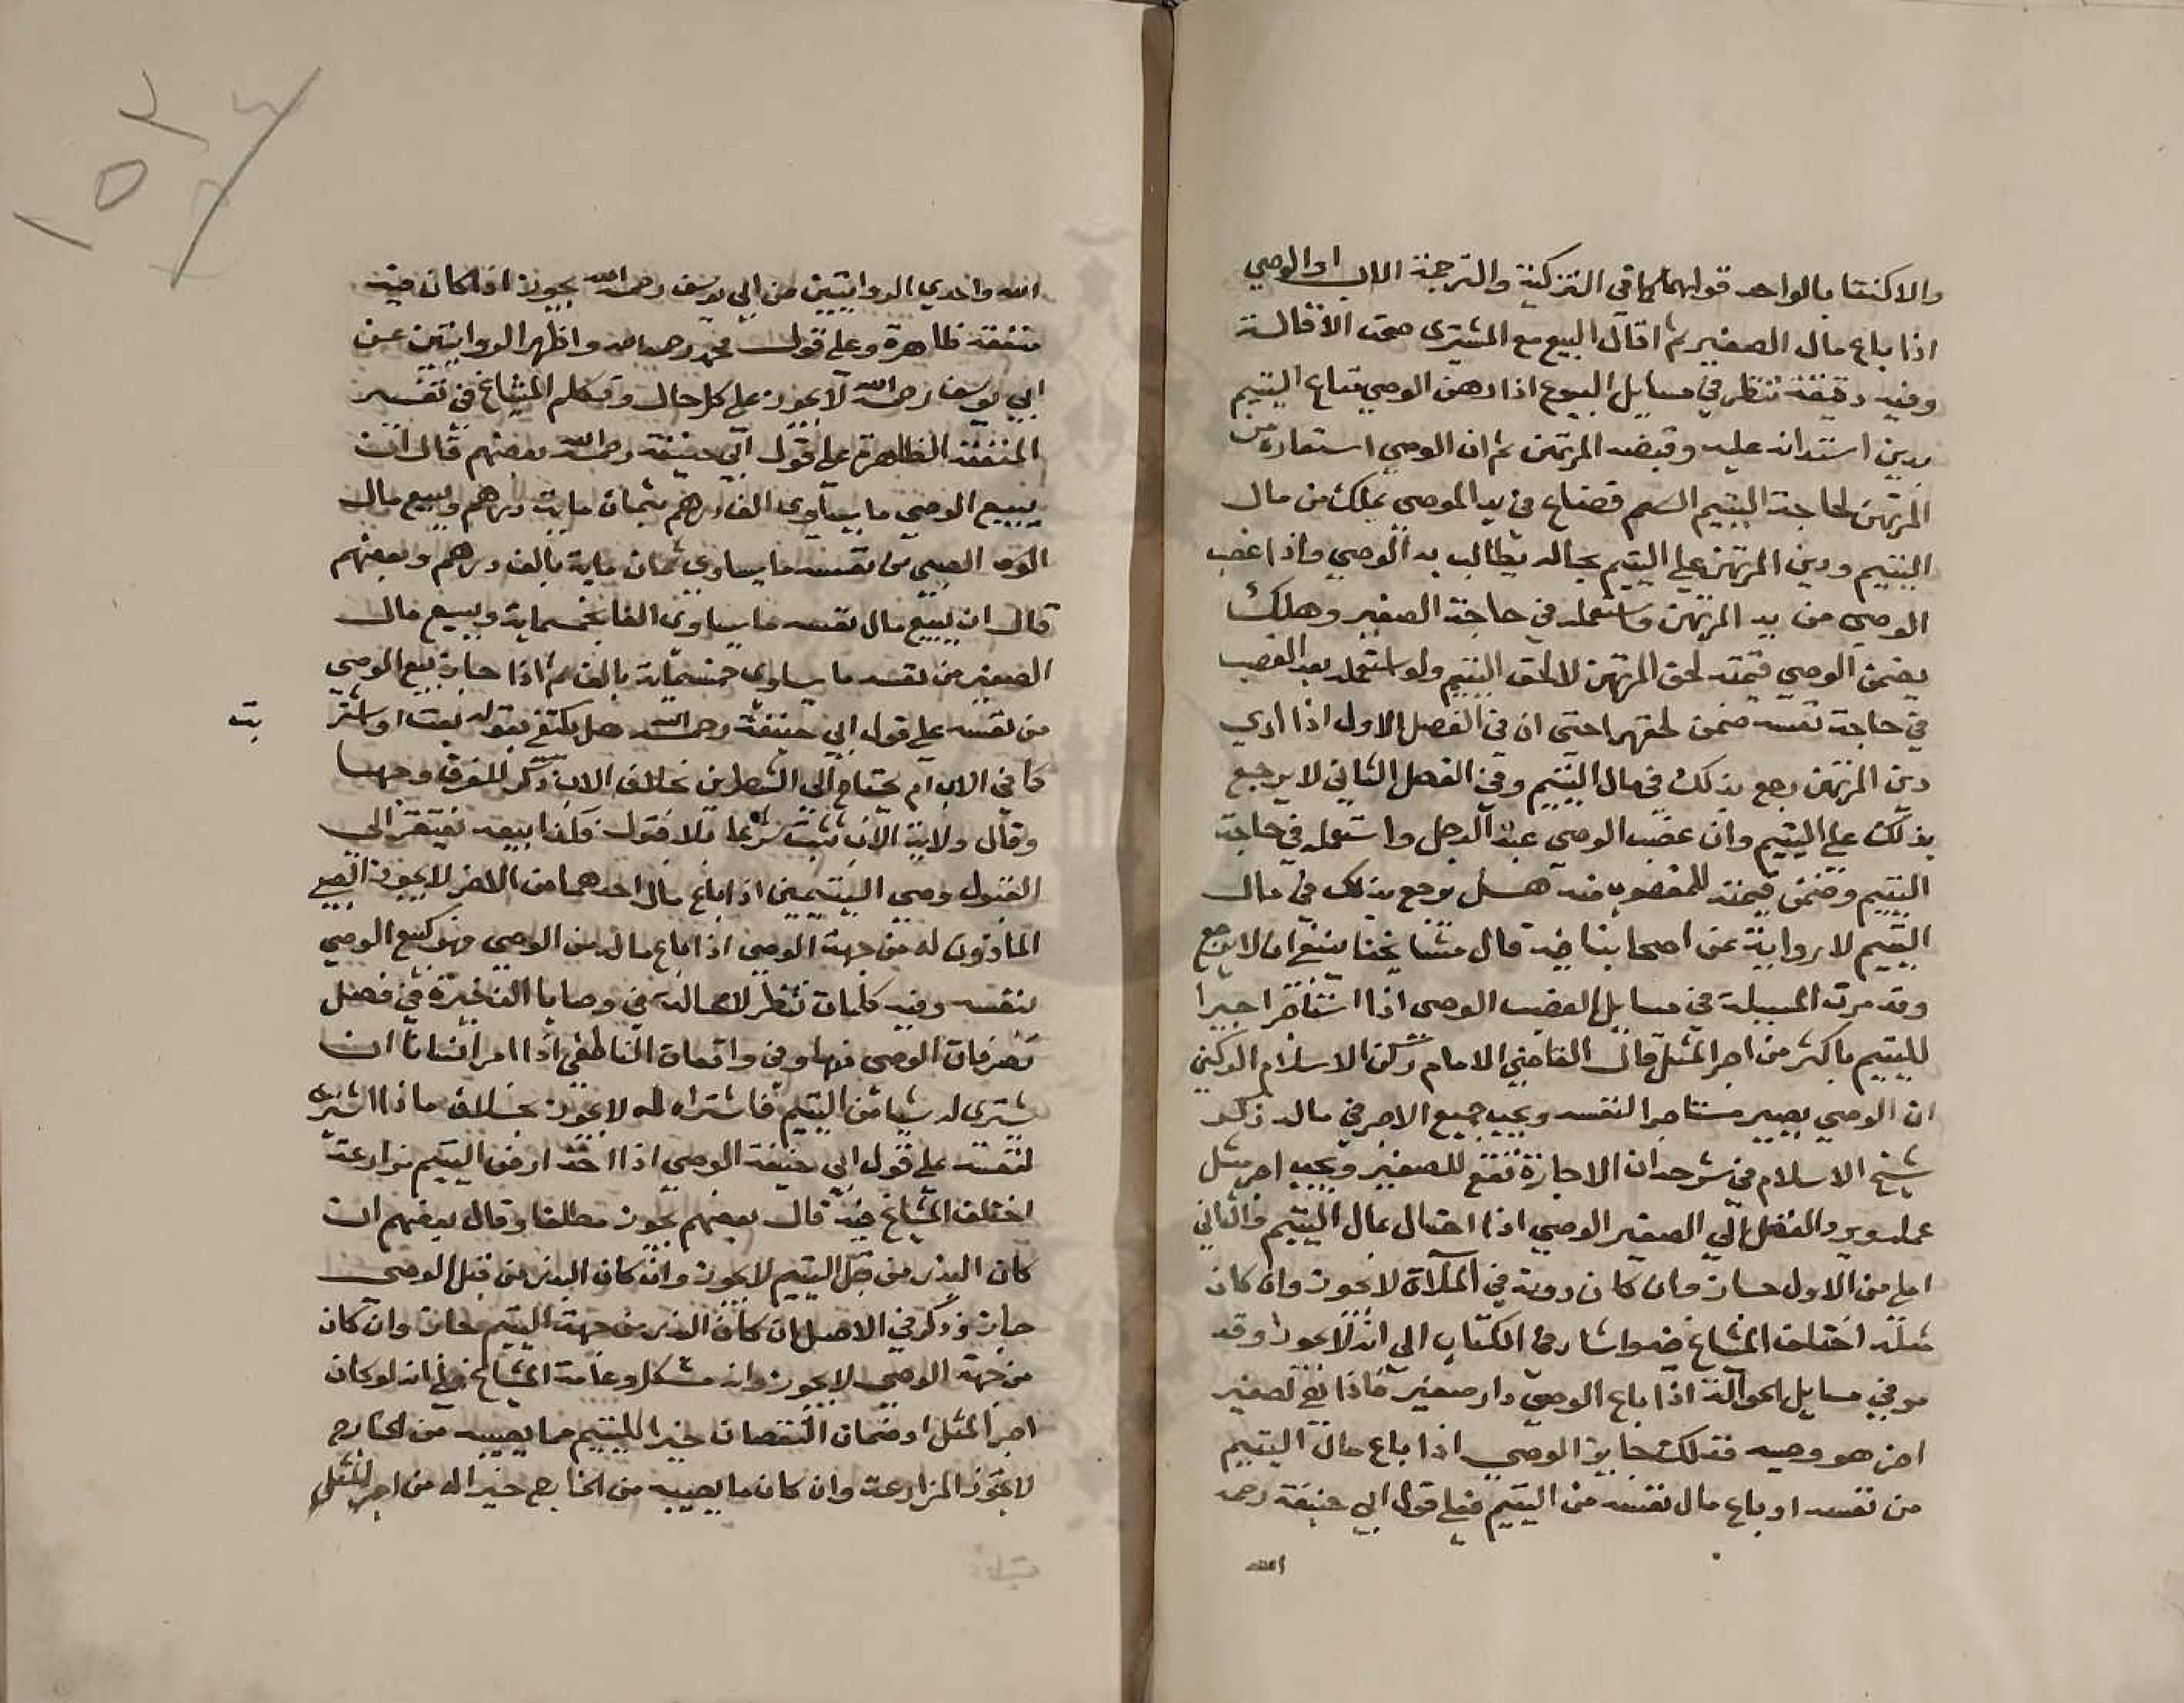 والاكتفا بالواحد قولهما كما في التزكية والترجمة الاب او الوصي
اذا باع مال الصغير ثم اقال البيع مع المشتري صحت الاقالة
وفيه دقيقة تنظر في مسايل البيوع اذا رهن الوصي متاع اليتيم
بدين استدانه عليه وقبضه المرتهن ثم ان الوصي استعاره من
المرتهن لحاجة اليتيم فضاع في يد الوصي يهلك من مال
اليتيم ودين المرتهن على اليتيم بحاله يطالب به الوصي واذا غصب
الوصي من يد المرتهن واستعمله في حاجة الصغير وهلك
يضمن الوصي قيمته لحق المرتهن لا لحق اليتيم ولو استعمله بعد الغصب
في حاجة نفسه ضمن لحقهما حتى ان في الفصل الاول اذا ادي
دين المرتهن رجع بذلك في مال اليتيم وفي الفصل الثاني لا يرجع
بذلك على اليتيم وان غصب الوصي عبد الرجل واستعمله في حاجة
اليتيم وضمن قيمته للمغصوب منه هل يرجع بذلك في مال
اليتيم لا رواية عن اصحابنا فيه قال مشايخنا ينبغي ان لا يرجع
وقد مرت المسيلة في مسايل الغصب الوصي اذا استاجر اجيرا
لليتيم باكثر من اجر المثل قال القاضي الامام ركن الاسلام
ان الوصي يصير مستاجرا لنفسه ويجب جميع الاجر في ماله ذكر
شيخ الاسلام في شرحه ان الاجارة تقع للصغير ويجب اجر مثل
عمله ويرد الفضل الي الصغير الوصي اذا احتال بمال اليتيم والثاني
املي من الاول جاز وان كان دونه في الملآة لا يجوز وان كان
مثله اختلف المشايخ فيه واشار في الكتاب الي انه لا يجوز وقد
مر في مسايل الحوالة اذا باع الوصي دار صغير لصغير
اخر هو وصيه فذلك جايز الوصي اذا باع مال اليتيم
من نفسه او باع مال نفسه من اليتيم فعلي قول ابي حنيفة رحمه
الله
الله واحدي الروايتين عن ابي يوسف رحمه الله يجوز اذا كان فيه
منفعة ظاهرة وعلي قول محمد رحمه الله واظهر الروايتين عن
ابي يوسف رحمه الله لا يجوز علي كل حال وتكلم المشايخ في تفسير
المنفعة الظاهرة علي قول ابي حنيفة رحمه الله بعضهم قال ان
يبيع الوصي ما يساوي الف درهم بثمان ماية درهم ويبيع مال
الصبي من نفسه ما يساوي ثمان ماية بالف درهم وبعضهم
قال ان يبيع مال نفسه ما يساوي الفا بخمسماية ويبيع مال
الصغير من نفسه ما يساوي خمسماية بالف ثم اذا جاز بيع الوصي
من نفسه علي قول ابي حنيفة رحمه الله هل يكتفي بقوله بعت او اشتر
يت
كما في الاب ام يحتاج الي الشطرين بخلاف الاب ذكر للفرق وجها
وقال ولاية الاب تثبت شرعا بلا قبول فكذا بيعه يفتقر الي
القبول وصي اليتيمين اذا باع مال احدهما من الاخر لا يجوز الصبي
الماذون له من جهة الوصي اذا باع ماله من الوصي فهو كبيع الوصي
بنفسه وفيه كلمات تنظر لا محالة في وصايا الذخيرة في فصل
تصرفات الوصي فيها وفي واقعات الناطفي اذا امر انسانا ان
يشتري له شيا من اليتيم فاشتراه له لا يجوز بخلاف ما اذا اشتري
لنفسه علي قول ابي حنيفة الوصي اذا اخذ ارض اليتيم مزارعة
اختلف المشايخ فيه قال بعضهم يجوز مطلقا وقال بعضهم ان
كان البذر من قبل اليتيم لا يجوز وان كان البذر من قبل الوصي
جاز وذكر في الاصل ان كان البذر من جهة اليتيم جاز وان كان
من جهة الوصي لا يجوز وانه مشكل وعامة المشايخ علي انه لو كان
اجر المثل او ضمان النقصان خيرا لليتيم مما يصيبه من الخارج
لا يجوز المزارعة وان كان ما يصيبه من الخارج خيرا له من اجر المثل